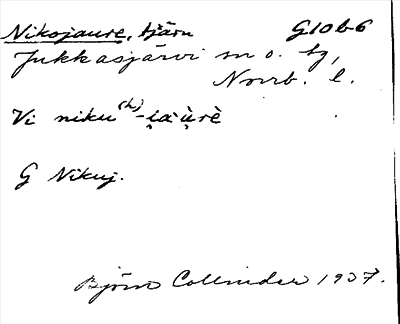 Nikojaure, tjärn G.10 b-6
Jukkasjärvi sn o. tg,
Norrb. l.
Vi niku(h)-i̯ȧ·ụ̀rè
G Nikuj.
Björn Collinder 1937.